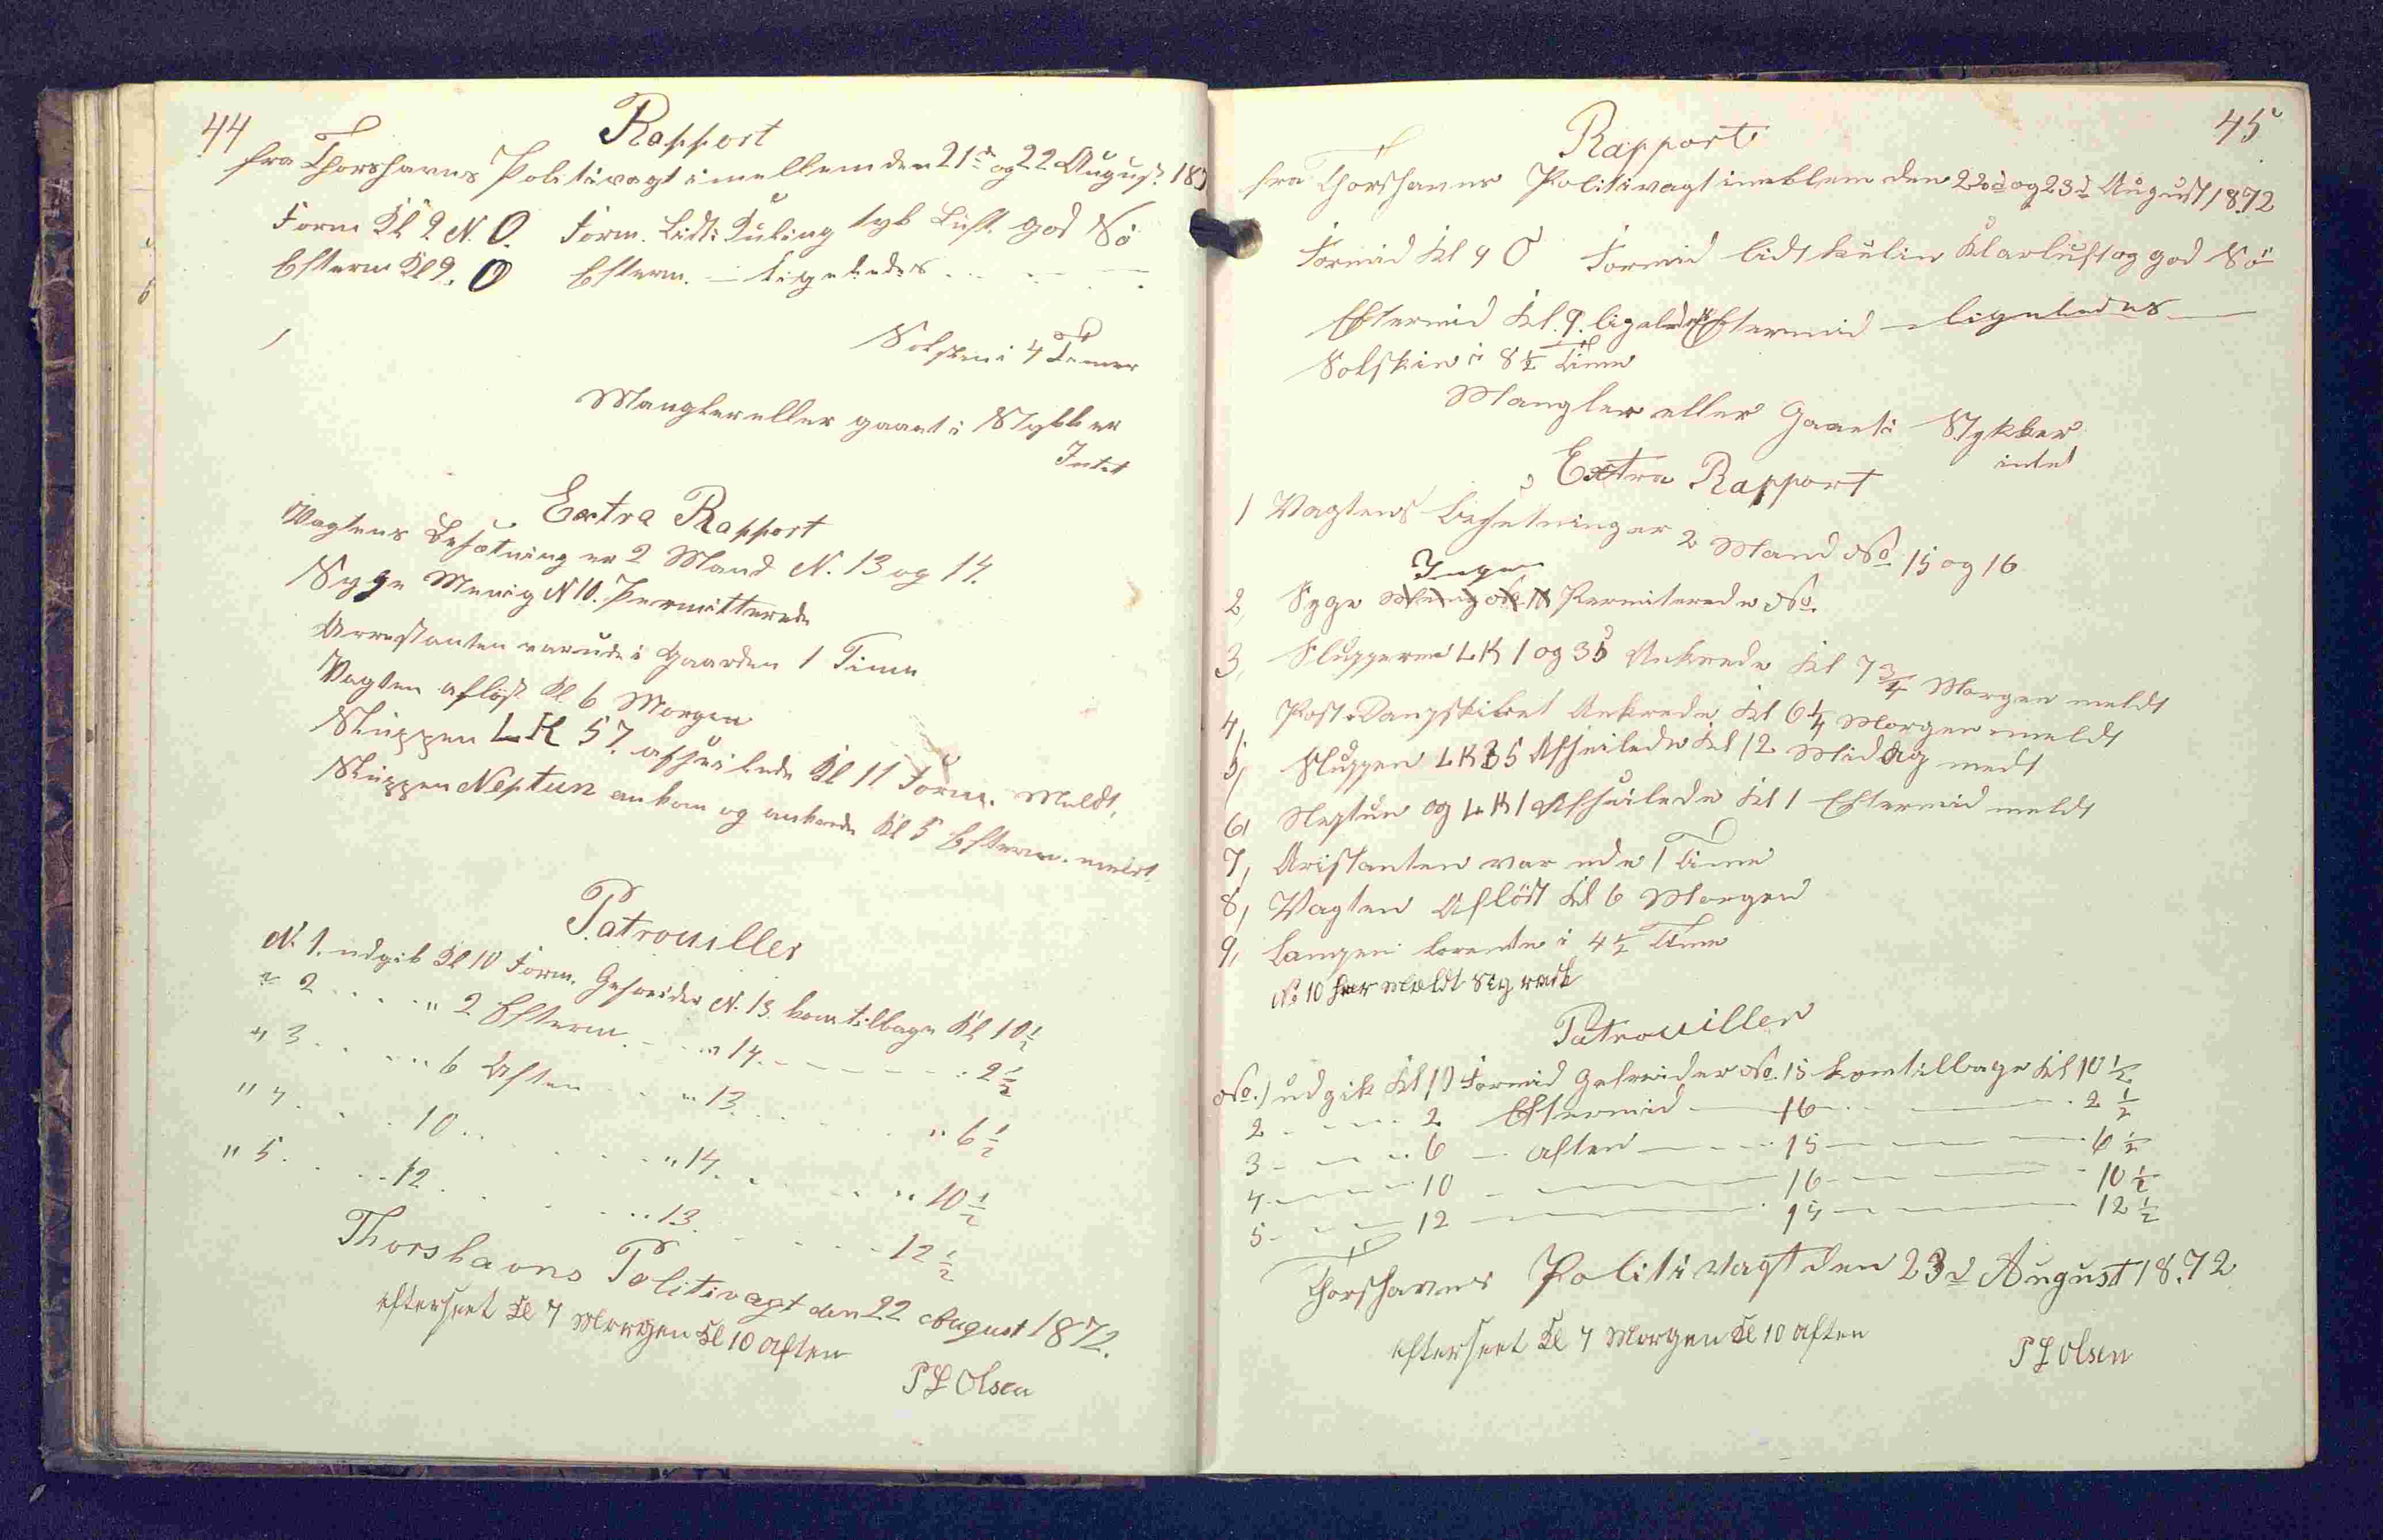 44
Rapport
fra Thorshavns Politivagt imellem den 21de og 22 August 187
Form Kl 9 N. O. Form. Lidt Kuling tyk Luft god Sö
Efterm Kl 9. O Efterm. — ligeledes . . . — —
Solskin i 4 Timer
Mangler eller gaaet i Stykker
Intet
Extra Rapport
Vagtens Besætning er 2 Mand N. 13 og 14.
Syge Menig N 10. Permitterede
Arrestanten var ude i Gaarden 1 Time
Vagten aflöst Kl 6 Morgen
Sluppen LK 57. afseilede Kl 11 Form. Meldt.
Sluppen Neptun ankom og ankrede Kl 5 Efterm. meldt.
Patrouiller
N. 1. udgik Kl 10 Form. Gefreider N. 13 kom tilbage Kl 10 1/2
" 2 . . . . " 2 Efterm. - . . " 14. - - - - - . 2 1/2
" 3 . . . . " 6 Aften . . . " 13. . . . . " 6 1/2
" 4. . . . 10 . . . . . . " 14. . . . . " 10 1/2
" 5. . . . 12 . . . . . . 13. - - - - 12 1/2
Thorshavns Politivagt den 22 August 1872.
efterseet Kl 7 Morgen Kl 10 Aften
P L Olsen
45
Rapport
fra Thorshavns Politivagt imellem den 22d og 23d August 1872
Formid Kl 9 O Formid lidt kulin Klarluft og god Sö
Eftermid Kl. 9. ligeledes Eftermid — ligeledes —
Solskin i 8 1/2 Time
Mangler eller Gaaet i Stykker
intet
Extra Rapport
1 Vagtens besetning er 2 Mand No 15 og 16
Ingen
2, Syge Menig No 10 Permiterede No.
3, Slupperne LK 1 og 35 Ankrede Kl 7 3/4 Morgen meldt
4, Post-Dampskibet Ankrede Kl 6 1/4 Morgen meldt
5, Sluppen LK 35 Afseilede Kl 12 Middag medt
6, Neptun og LK 1 Afseilede Kl 1 Eftermid meldt
7, Aristanten var ude 1 Time
8, Vagten Aflöst Kl 6 Morgen
9, Lampen brente i 4 1/2 Time
No 10 har Meldt sig rask
Patrouiller
No. 1 udgik Kl 10 Formid Gefreider No. 15 komtilbage Kl 10 1/2
2 - - - - 2 Eftermid — 16 - - — - 2 1/2
3 - - - - 6 - aften — - 15 — — — - 6 1/2
4 - - - - 10 - — — 16 - — — - 10 1/2
5 - - — 12 — — 15 — — 12 1/2
Thorshavns Politivagt den 23d August 18.72
efterseet Kl 7 Morgen Kl 10 Aften
P L Olsen